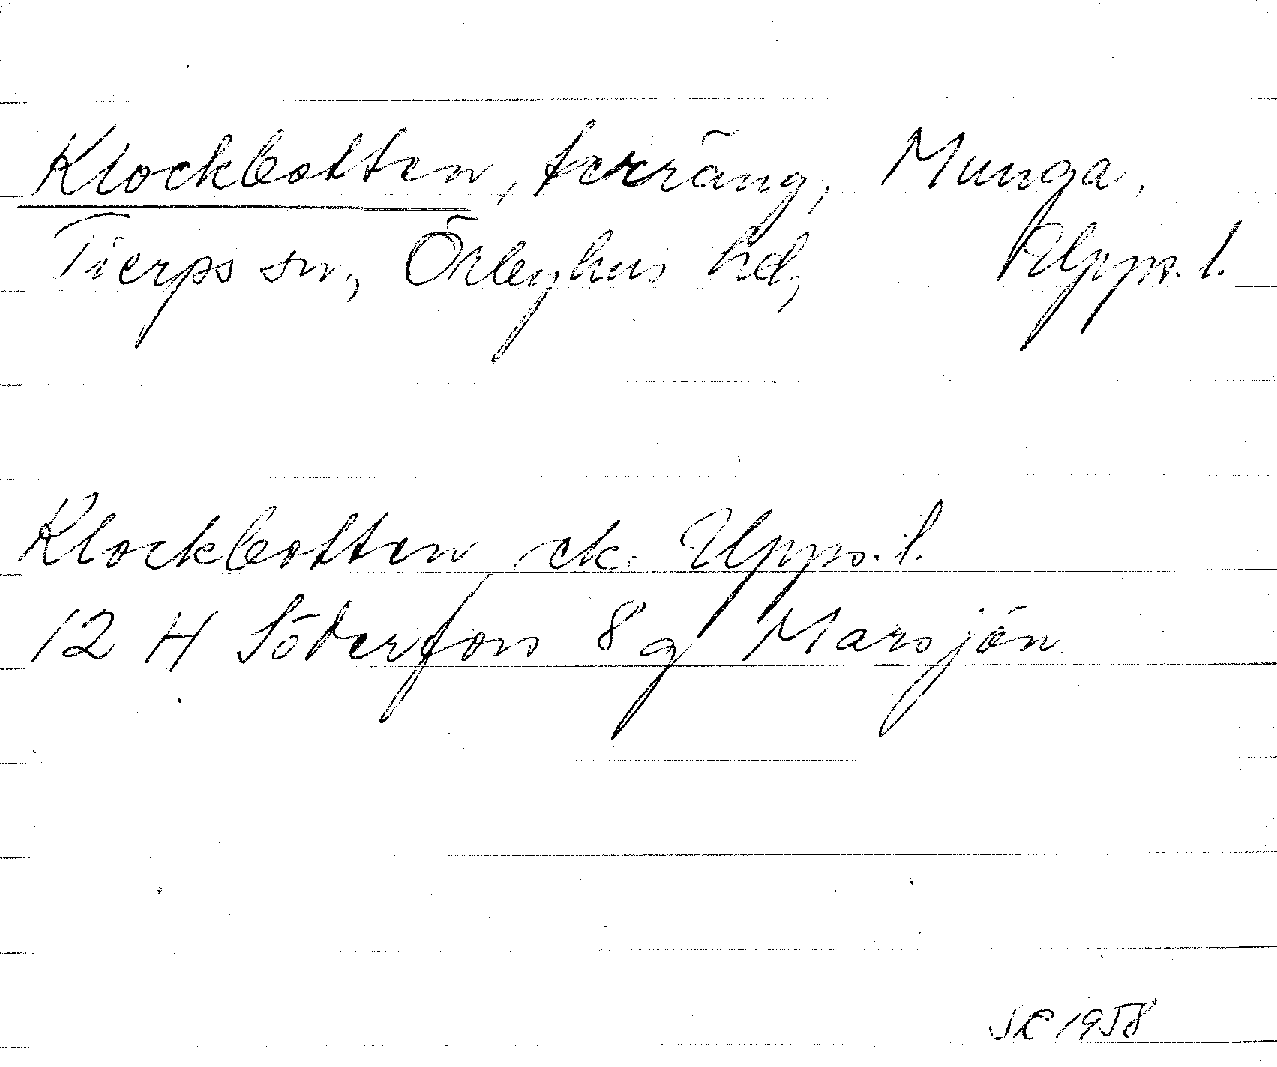 Klockbotten, terräng, Munga,
Tierps sn, Örbyhus hd, Upps. l.
Klockbotten ek. Upps. l.
12 H Söderfors 8 g Marsjön
1958